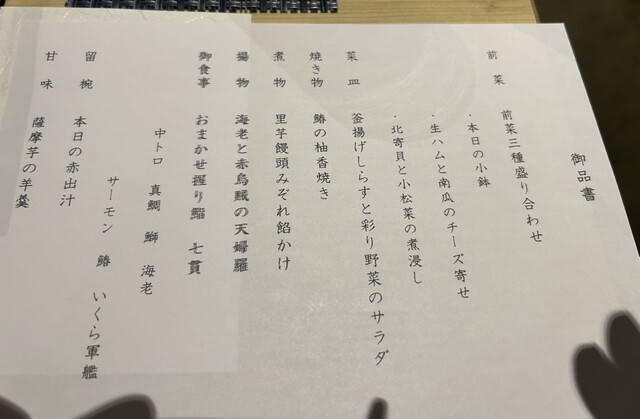 御品書
前菜 前菜三種盛り合わせ
・本日の小鉢
・生ハムと南瓜のチーズ寄せ
・北寄貝と小松菜の煮浸し
菜皿 釜揚げしらすと彩り野菜のサラダ
焼き物 鰆の柚香焼き
煮物 里芋饅頭みぞれ餡かけ
揚物 海老と赤烏賊の天婦羅
御食事 おまかせ握り鮨 七貫
中トロ 真鯛 鰤 海老
サーモン 鰆 いくら軍艦
留椀 本日の赤出汁
甘味 薩摩芋の羊羹